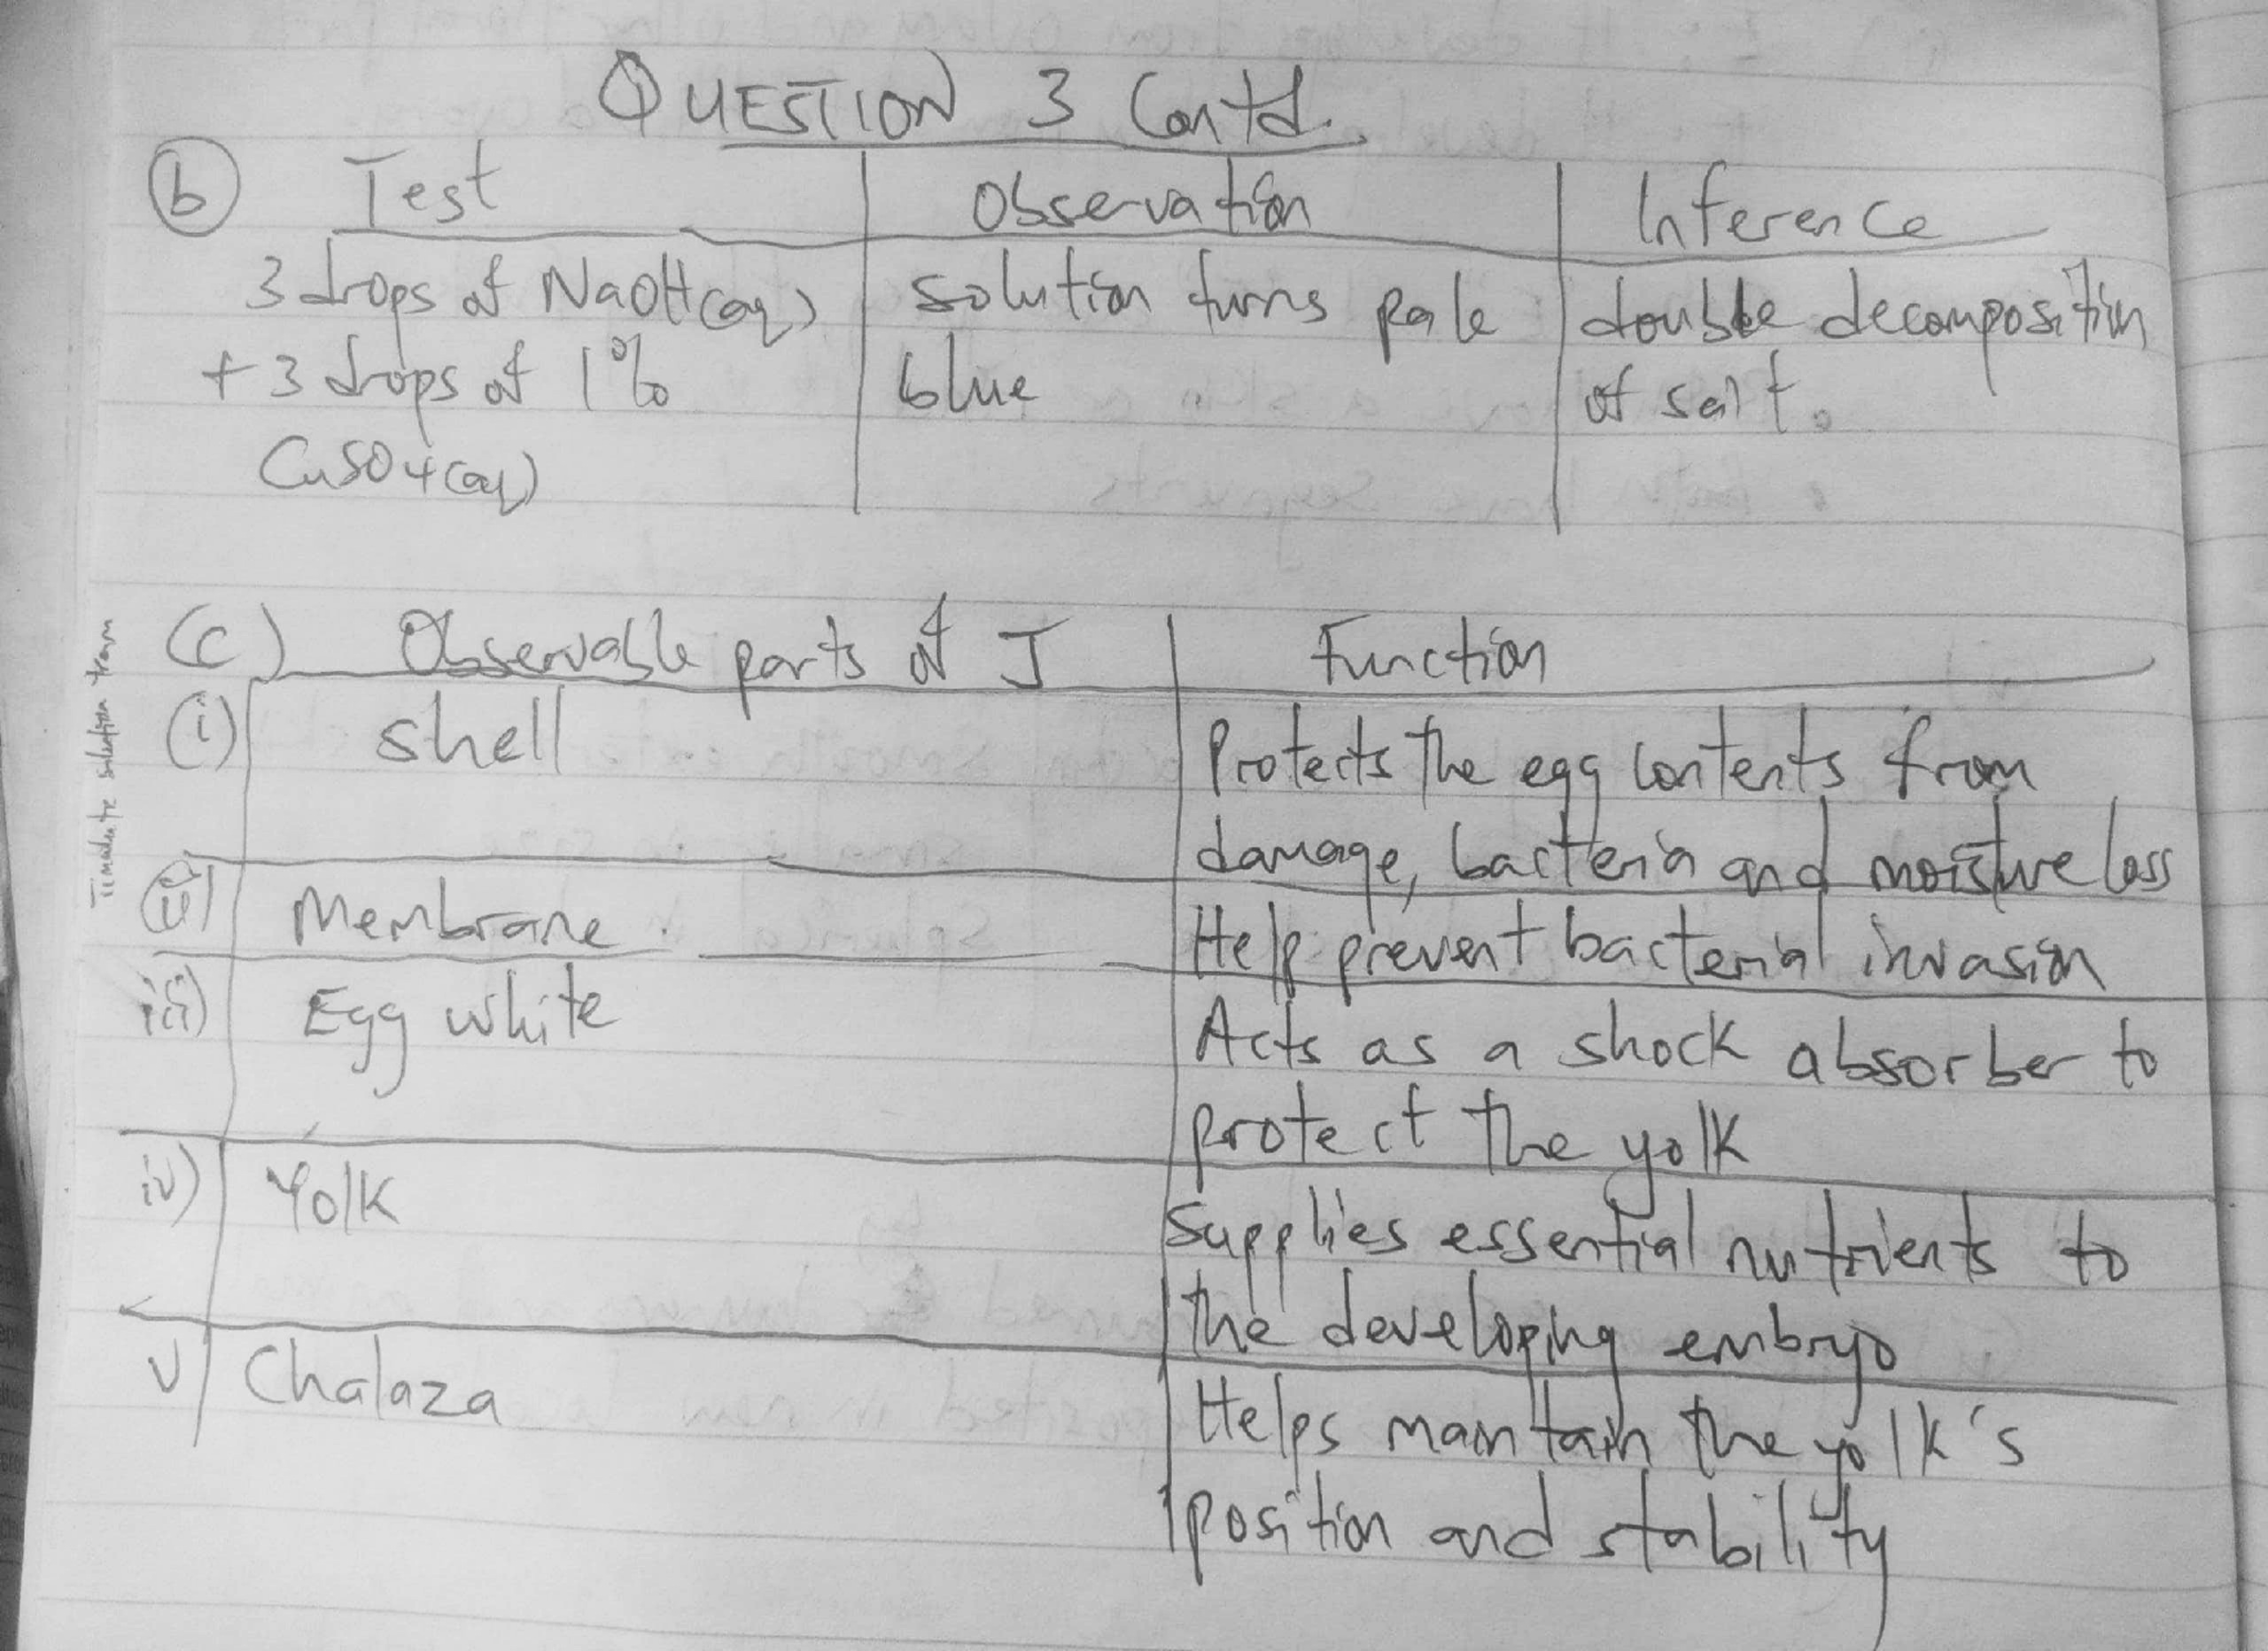 QUESTION 3 Contd.
(b) Test Observation Inference
3 drops of NaOH(aq) solution turns pale double decomposition
+ 3 drops of 1% blue of salt.
CuSO4(aq)
(c) Observable parts of J Function
(i) Shell Protects the egg contents from
damage, bacteria and moisture loss
(ii) Membrane. Help prevent bacterial invasion
iii) Egg white Acts as a shock absorber to
protect the yolk
iv) Yolk Supplies essential nutrients to
the developing embryo
v) Chalaza Helps maintain the yolk's
position and stability
solution team